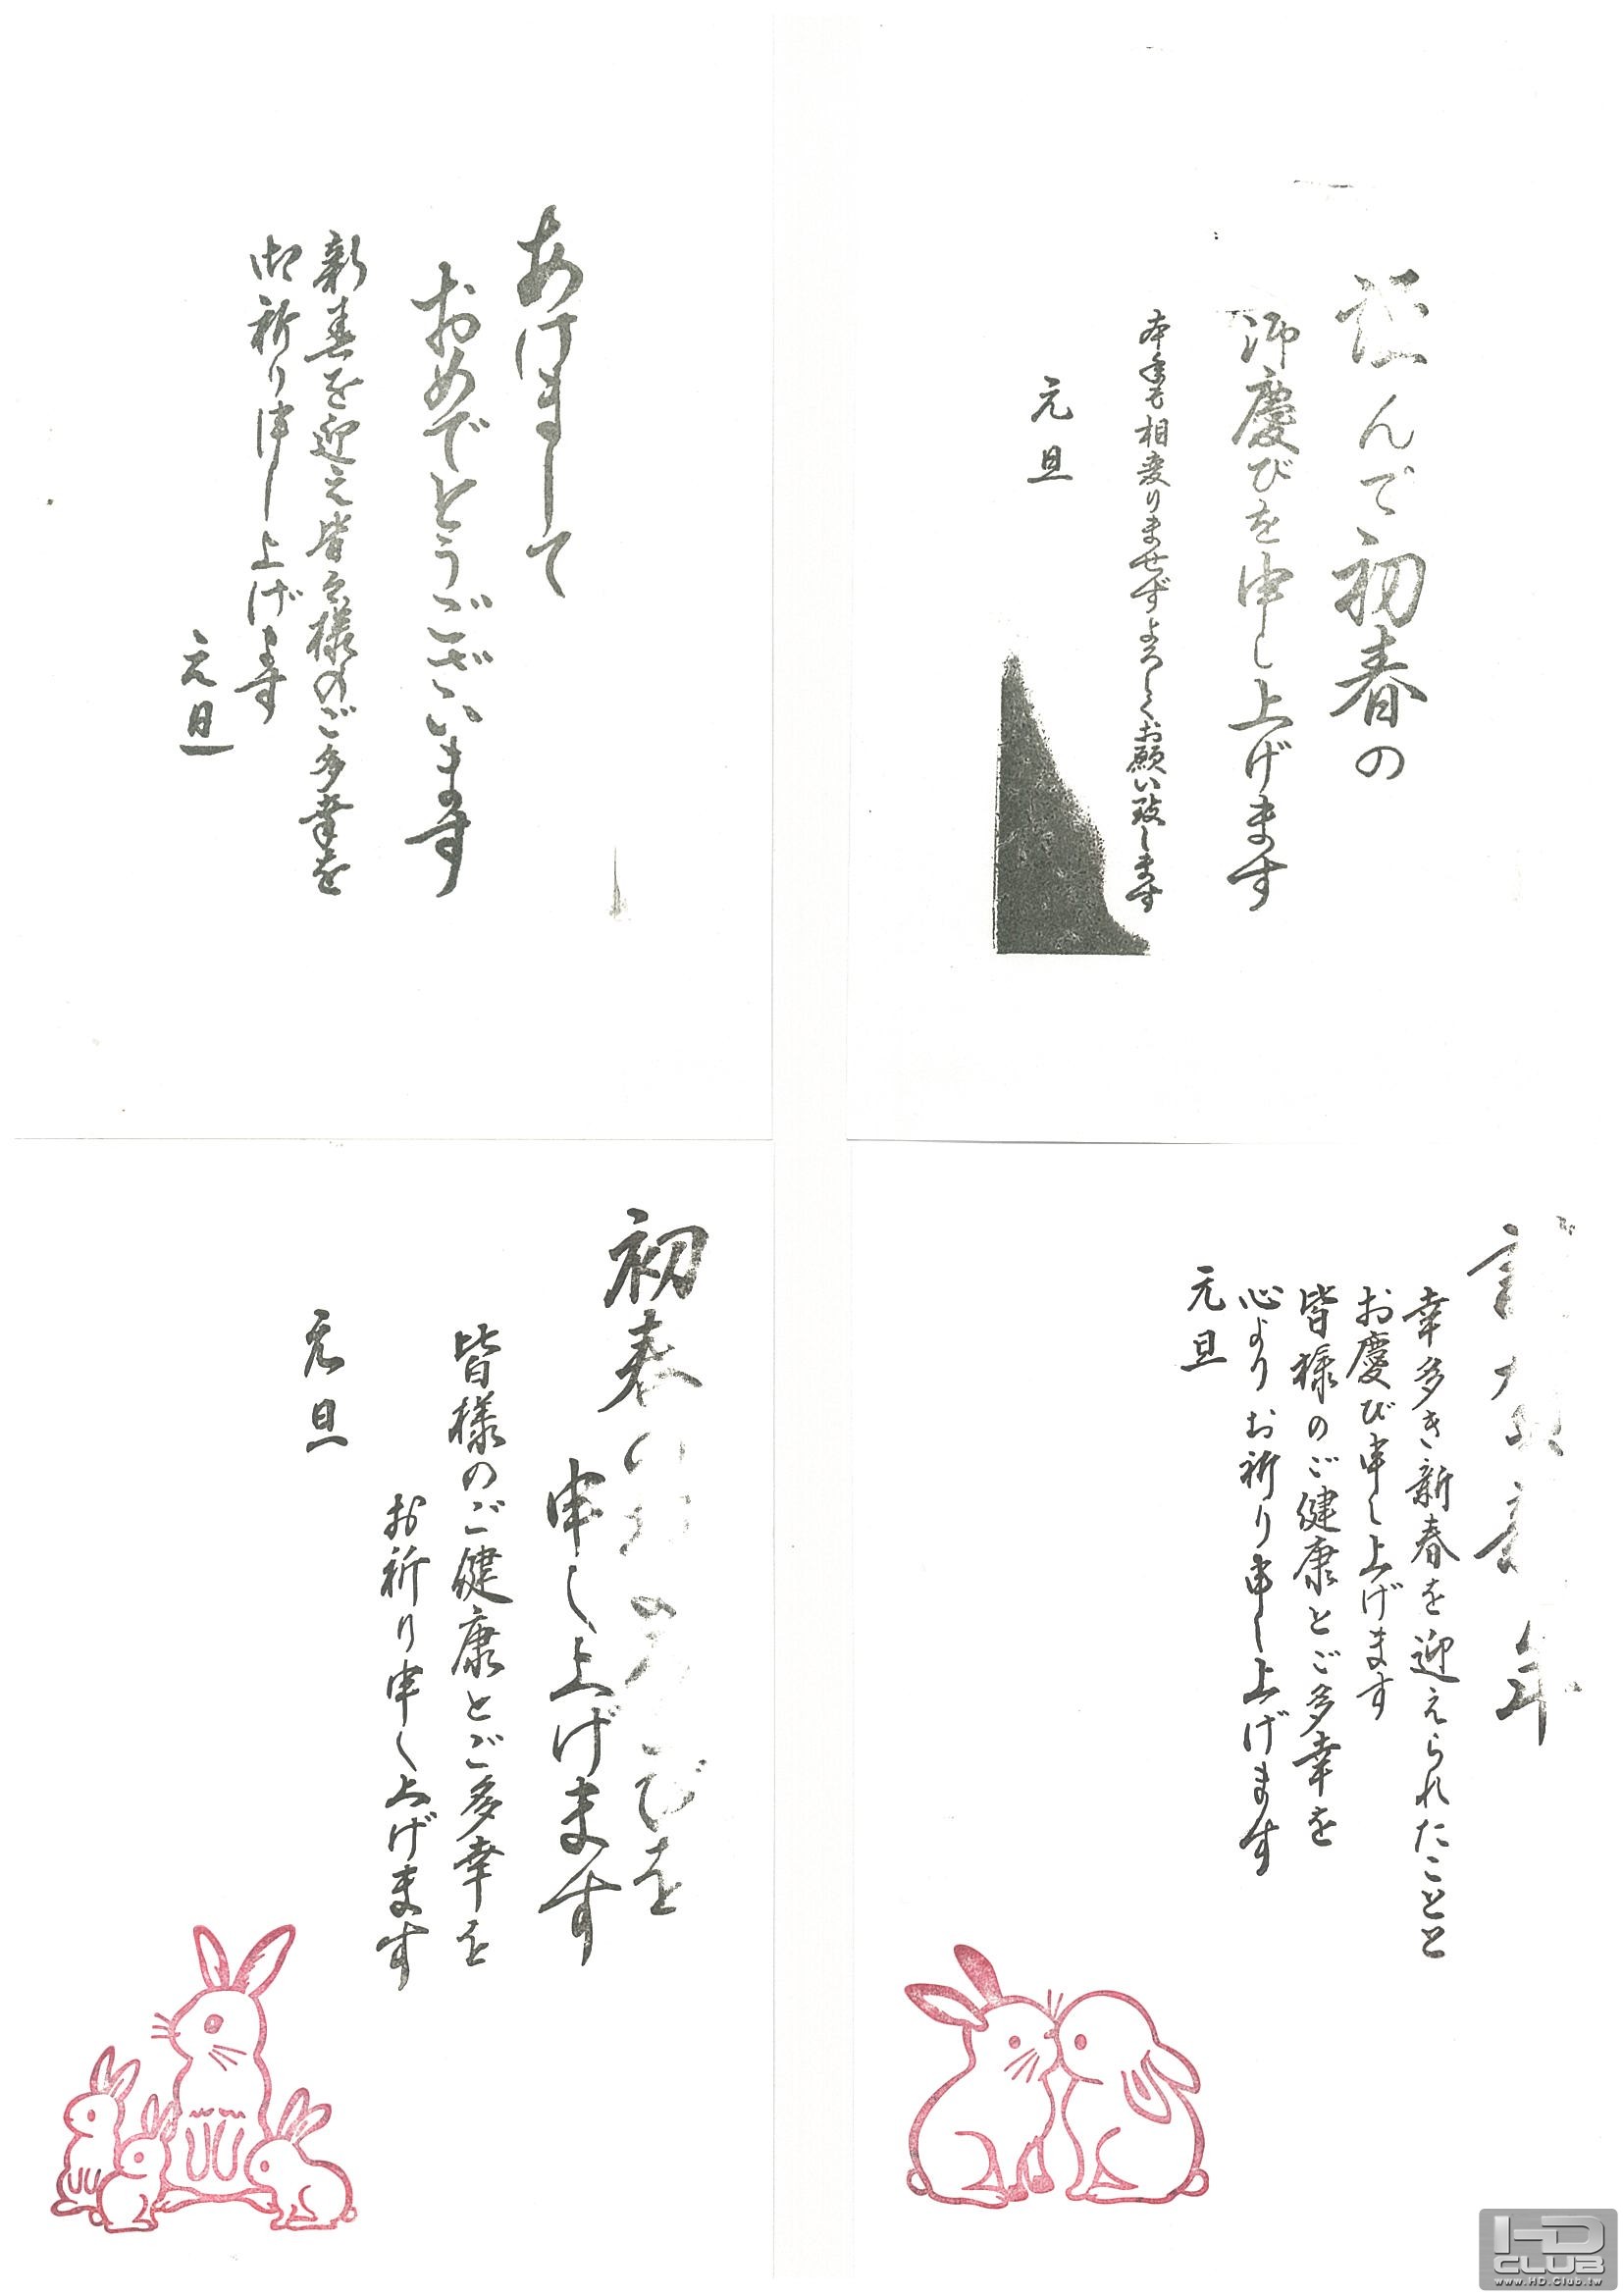 謹んで初春の
御慶びを申し上げます
本年も相変りませずよろしくお願い致します
元旦
あけまして
おめでとうございます
新春を迎え皆々様のご多幸を
御祈り申し上げます
元旦
年
幸多き新春を迎えられたことと
お慶び申し上げます
皆様のご健康とご多幸を
心よりお祈り申し上げます
元旦
初春の びを
申し上げます
皆様のご健康とご多幸を
お祈り申し上げます
元旦
HD CLUB
www.HD.Club.tw